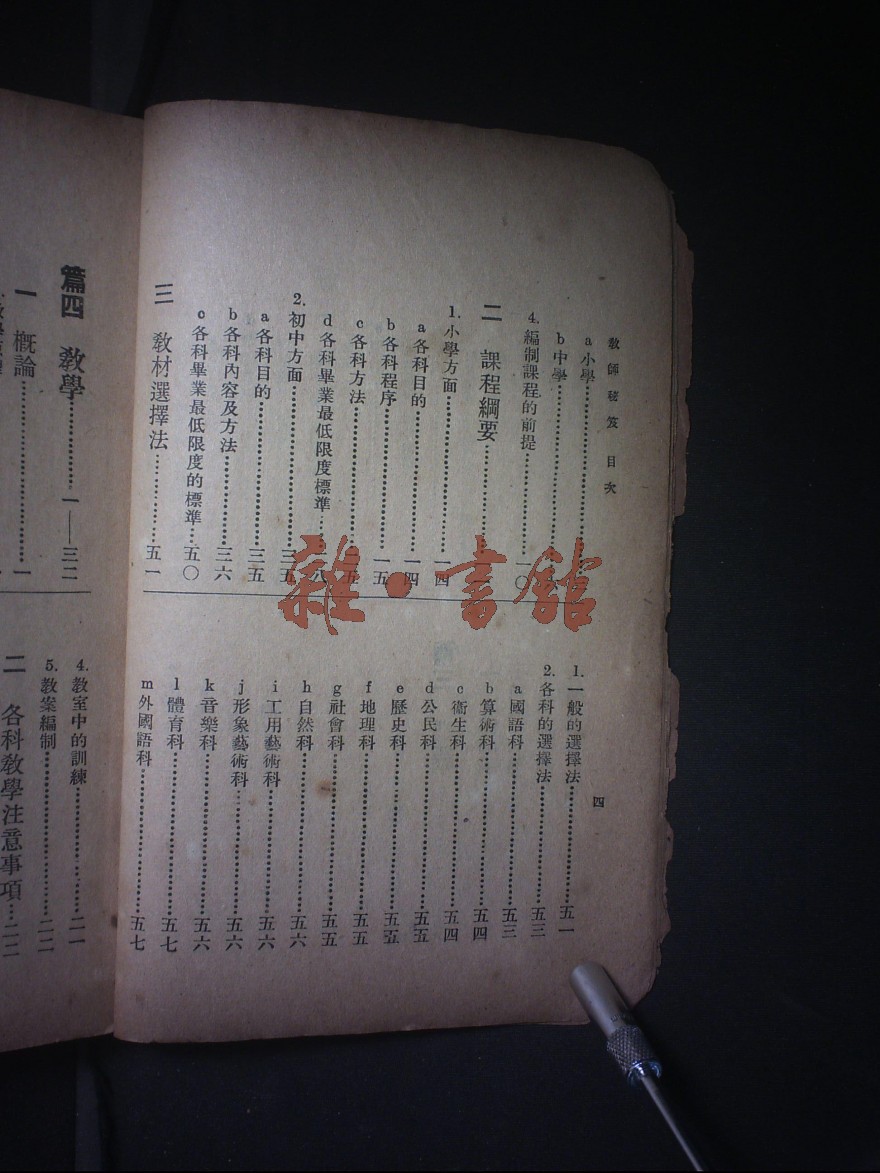 教師秘笈 目次
四
a小學
b中學
4.編制課程的前提……一〇
二 課程綱要
1.小學方面……一四
a各科目的……一四
b各科程序……一五
c各科方法
d各科畢業最低限度標準
2.初中方面……三五
a各科目的……三五
b各科內容及方法……三六
c各科畢業最低限度的標準……五〇
三 教材選擇法……五一
1.一般的選擇法……五一
2.各科的選擇法……五三
a國語科……五三
b算術科……五四
c衞生科……五四
d公民科……五五
e歷史科……五五
f地理科……五五
g社會科……五五
h自然科……五六
i工用藝術科……五六
j形象藝術科……五六
k音樂科……五六
l體育科……五七
m外國語科……五七
篇四 教學……一——三二
一 概論……一
4.教室中的訓練……二一
5.教案編制……二二
二 各科教學注意事項……二二
雜·書館